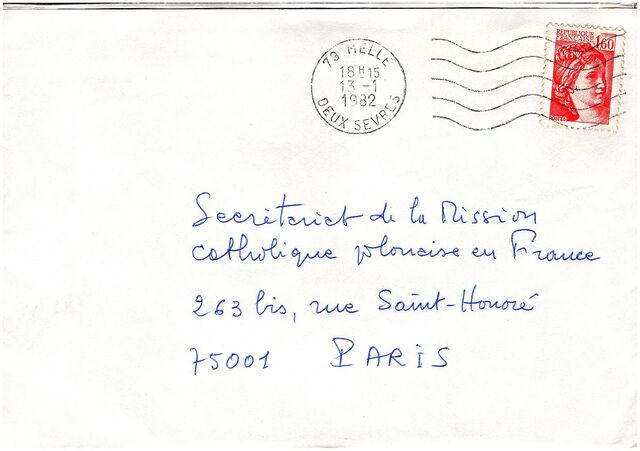 79 MELLE
18H15
13 -1
1982
DEUX SEVRES
REPUBLIQUE
FRANCAISE
1,60
Secrétariat de la Mission
catholique polonaise en France
263 bis, rue Saint-Honoré
75001 PARIS